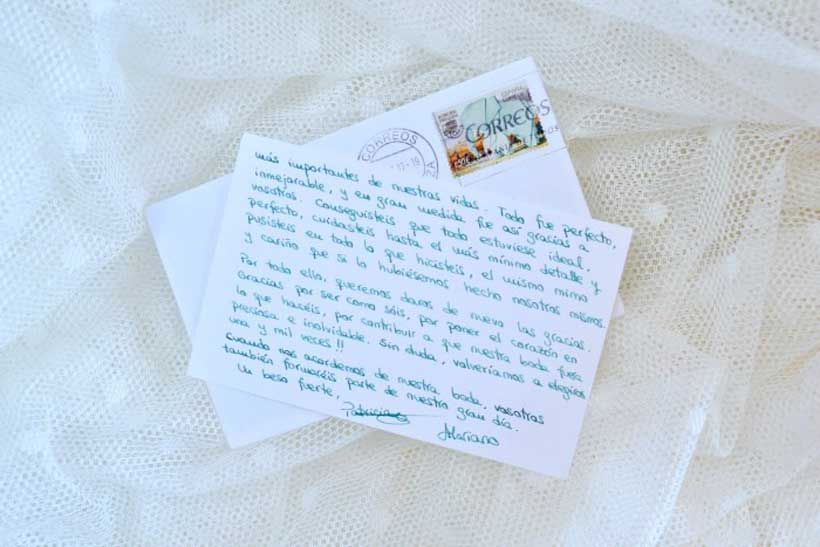 CORREOS
ESPAÑA
CORREOS
más importantes de nuestras vidas. Todo fue perfecto,
inmejorable, y en gran medida fue así gracias a
vosotros. Conseguisteis que todo estuviese ideal,
perfecto, cuidasteis hasta el más mínimo detalle y
pusisteis en todo lo que hicisteis, el mismo mimo
y cariño que si lo hubiésemos hecho nosotros mismos.
Por todo ello, queremos daros de nuevo las gracias.
Gracias por ser como sóis, por poner el corazón en
lo que hacéis, por contribuir a que nuestra boda fuera
preciosa e inolvidable. Sin duda, volveríamos a elegiros
una y mil veces!!
Cuando nos acordemos de nuestra boda, vosotros
también formaréis parte de nuestro gran día.
Un beso fuerte,
Patricia
Mariano